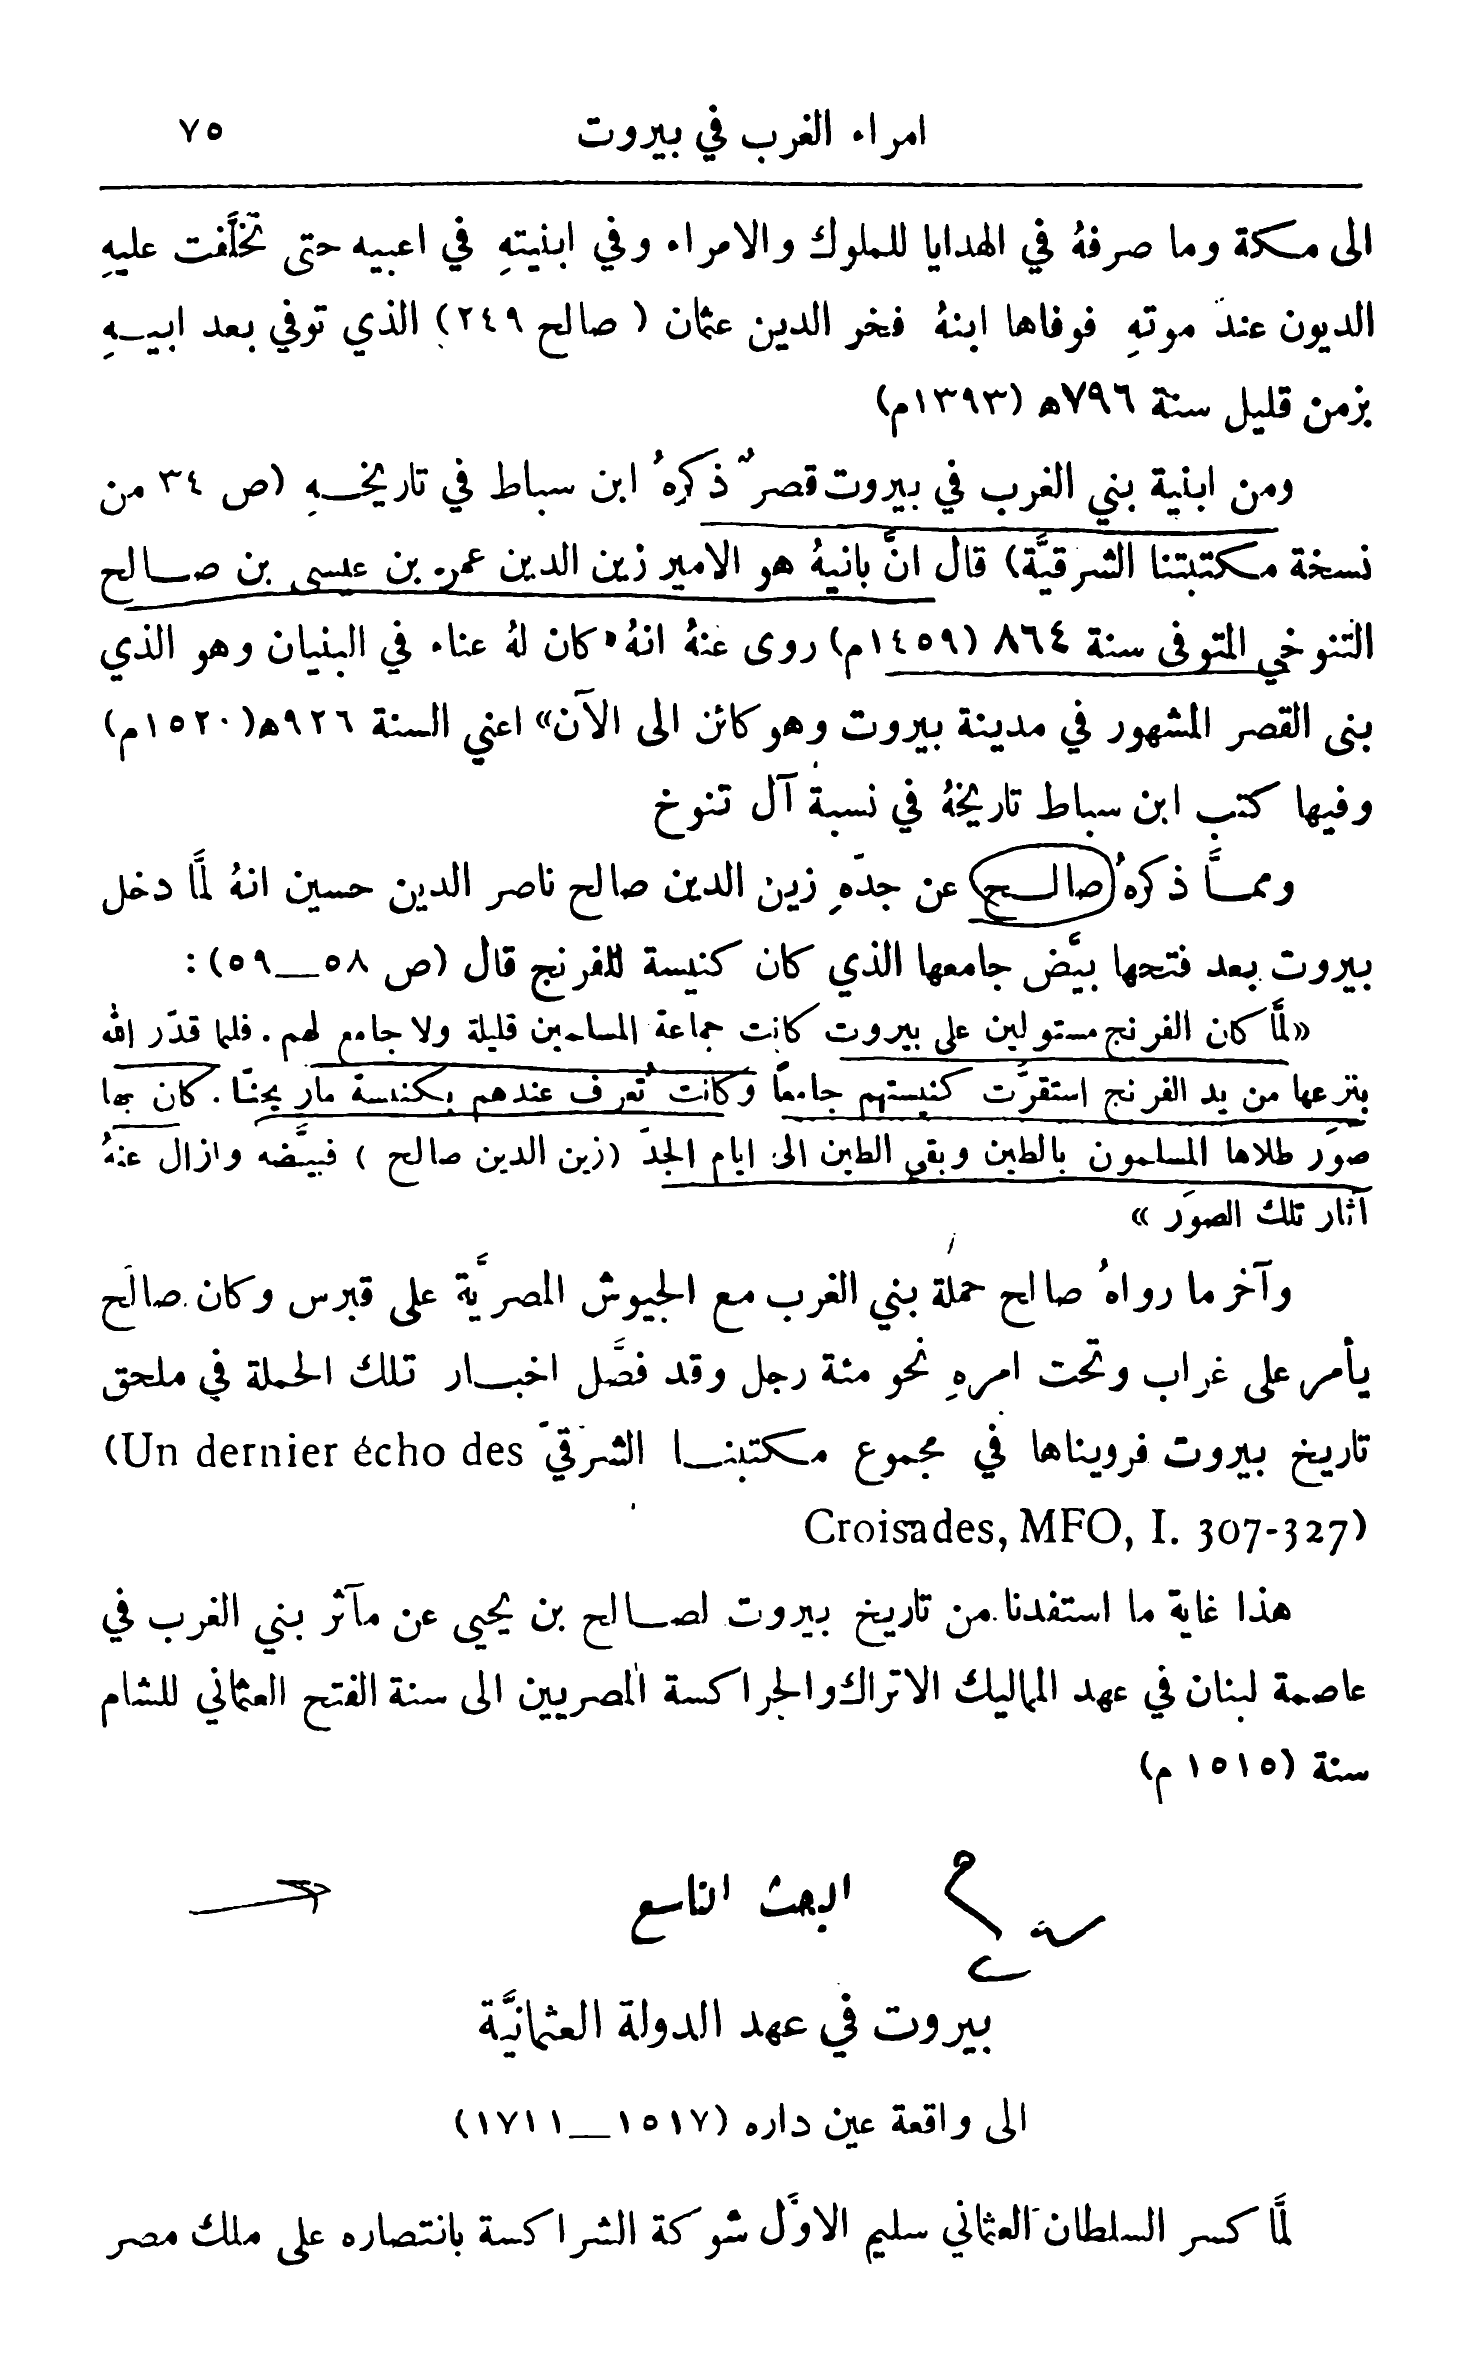 امراء الغرب في بيروت ٧٥
الى مكة وما صرفهُ في الهدايا للملوك والامراء وفي ابنيتهِ في اعبيه حتى تخلَّفت عليهِ
الديون عند موتهِ فوفاها ابنهُ فخر الدين عثمان ( صالح ٢٤٩) الذي توفي بعد ابيــهِ
بزمن قليل سنة ٧٩٦ھ (١٣٩٣م)
ومن ابنية بني الغرب في بيروت قصرٌ ذكرهُ ابن سباط في تاريخــهِ (ص ٣٤ من
نسخة مكتبتنا الشرقيَّة) قال انَّ بانيهُ هو الامير زين الدين عمر بن عيسى بن صــالح
التنوخي المتوفى سنة ٨٦٤ (١٤٥٩م) روى عنهُ انهُ «كان لهُ عناء في البنيان وهو الذي
بنى القصر المشهور في مدينة بيروت وهو كائن الى الآن» اعني السنة ٩٢٦ھ(١٥٢٠م)
وفيها كتب ابن سباط تاريخهُ في نسبة آل تنوخ
وممــَّا ذكرهُ صالــح عن جدّهِ زين الدين صالح ناصر الدين حسين انهُ لمَّا دخل
بيروت بعد فتحها بيَّض جامعها الذي كان كنيسة للفرنج قال (ص ٥٨—٥٩):
«لمَّا كان الفرنج مستولين على بيروت كانت جماعة المسلمين قليلة ولا جامع لهم. فلما قدّر الله
بنزعها من يد الفرنج استقرَّت كنيستهم جامعًا وكانت تُعرف عندهم بكنيسة مار يحنَّا. كان بها
صوَر طلاها المسلمون بالطين وبقي الطين الى ايام الجدّ (زين الدين صالح ) فبيَّضه وازال عنهُ
آثار تلك الصوَر »
وآخر ما رواهُ صالح حملة بني الغرب مع الجيوش المصريَّة على قبرس وكان صالح
يأمر على غراب وتحت امرهِ نحو مئة رجل وقد فصَّل اخبــار تلك الحملة في ملحق
تاريخ بيروت فرويناها في مجموع مكتبتنــا الشرقيّ (Un dernier écho des
Croisades, MFO, I. 307-327)
هذا غاية ما استفدنا من تاريخ بيروت لصــالح بن يحيى عن مآثر بني الغرب في
عاصمة لبنان في عهد المماليك الاتراك والجراكسة المصريين الى سنة الفتح العثماني للشام
سنة (١٥١٥ م)
البحث التاسع
بيروت في عهد الدولة العثمانيَّة
الى واقعة عين داره (١٥١٧—١٧١١)
لمَّا كسر السلطان العثماني سليم الاوَّل شوكة الشراكسة بانتصاره على ملك مصر